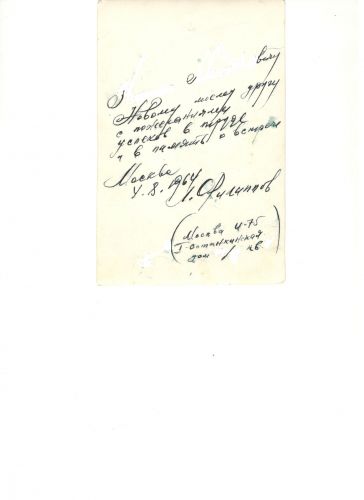 Новому милому другу
с пожеланиями
успехов в труде
и в память о встрече
Москва
4.8.1964 Филиппов
(Москва И-75
1-Останкинская
дом / кв.)